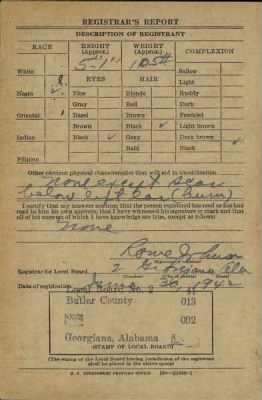 REGISTRAR'S REPORT
DESCRIPTION OF REGISTRANT
RACE HEIGHT (Approx.) WEIGHT (Approx.) COMPLEXION
5-1" 105#
White Sallow
EYES HAIR Light
Negro ✓ Blue Blonde Ruddy
Gray Red Dark
Oriental Hazel Brown Freckled
Brown Black ✓ Light brown
Indian Black ✓ Gray Dark brown
Bald Black ✓
Filipino
Other obvious physical characteristics that will aid in identification
None except scar
below left ear (burn)
I certify that my answers are true; that the person registered has read or has had
read to him his own answers; that I have witnessed his signature or mark and that
all of his answers of which I have knowledge are true, except as follows:
None
Johnson
Registrar for Local Board 2 Georgiana Ala
Date of registration June 30, 1942
Local Board No. 2 41
Butler County 013
002
Georgiana, Alabama
(STAMP OF LOCAL BOARD)
(The stamp of the Local Board having jurisdiction of the registrant
shall be placed in the above space)
U. S. GOVERNMENT PRINTING OFFICE